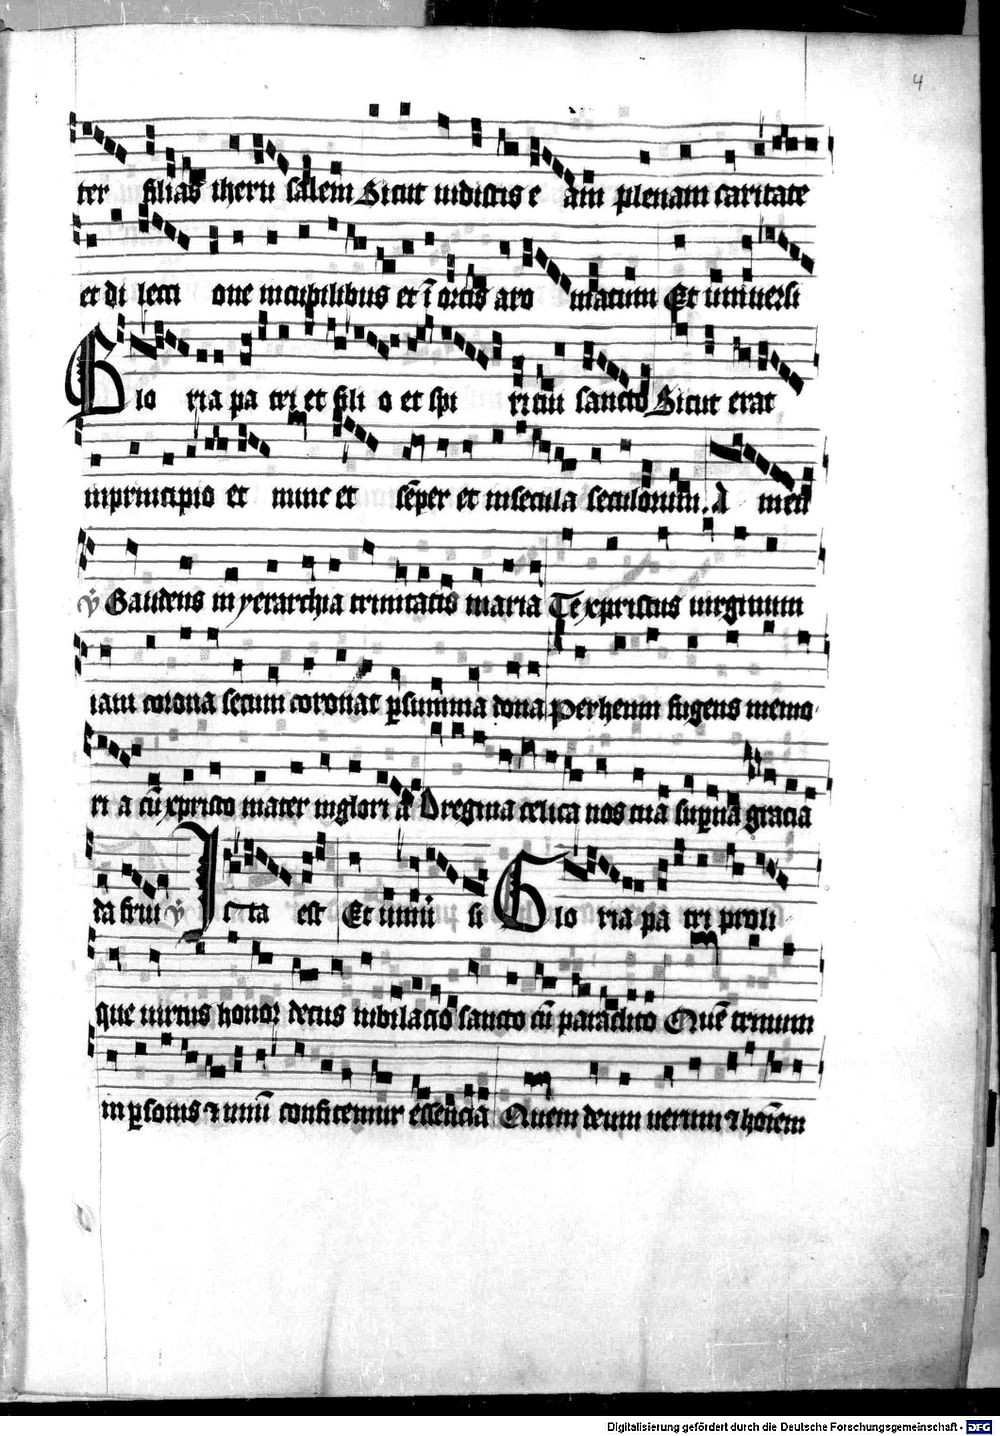 4
ter filias iheru salem Sicut uidistis e am plenam caritate
et di lecti one incubilibus et ī ortis aro matum Et uniuersi
Glo ria pa tri et fili o et spi ritui sancto Sicut erat
inprincipio et nunc et sēper et insecula seculorum. A men
v̄ Gaudens in yerarchia trinitatis maria Te xpristus uirginum
iam corona secum coronat ꝑsumma dona Perhenni fugens memo
ri a cū xpristo mater inglori a O regina celica nos tua suꝑna gracia
da frui v̄ Ista est Et uniū si Glo ria pa tri proli
que uirtus honor decus iubilacio sancto cū paraclito Quē trinum
in ꝑsonis ⁊ unū confitemur essencia Quem deum uerum ⁊ hoīem
Digitalisierung gefördert durch die Deutsche Forschungsgemeinschaft - DFG